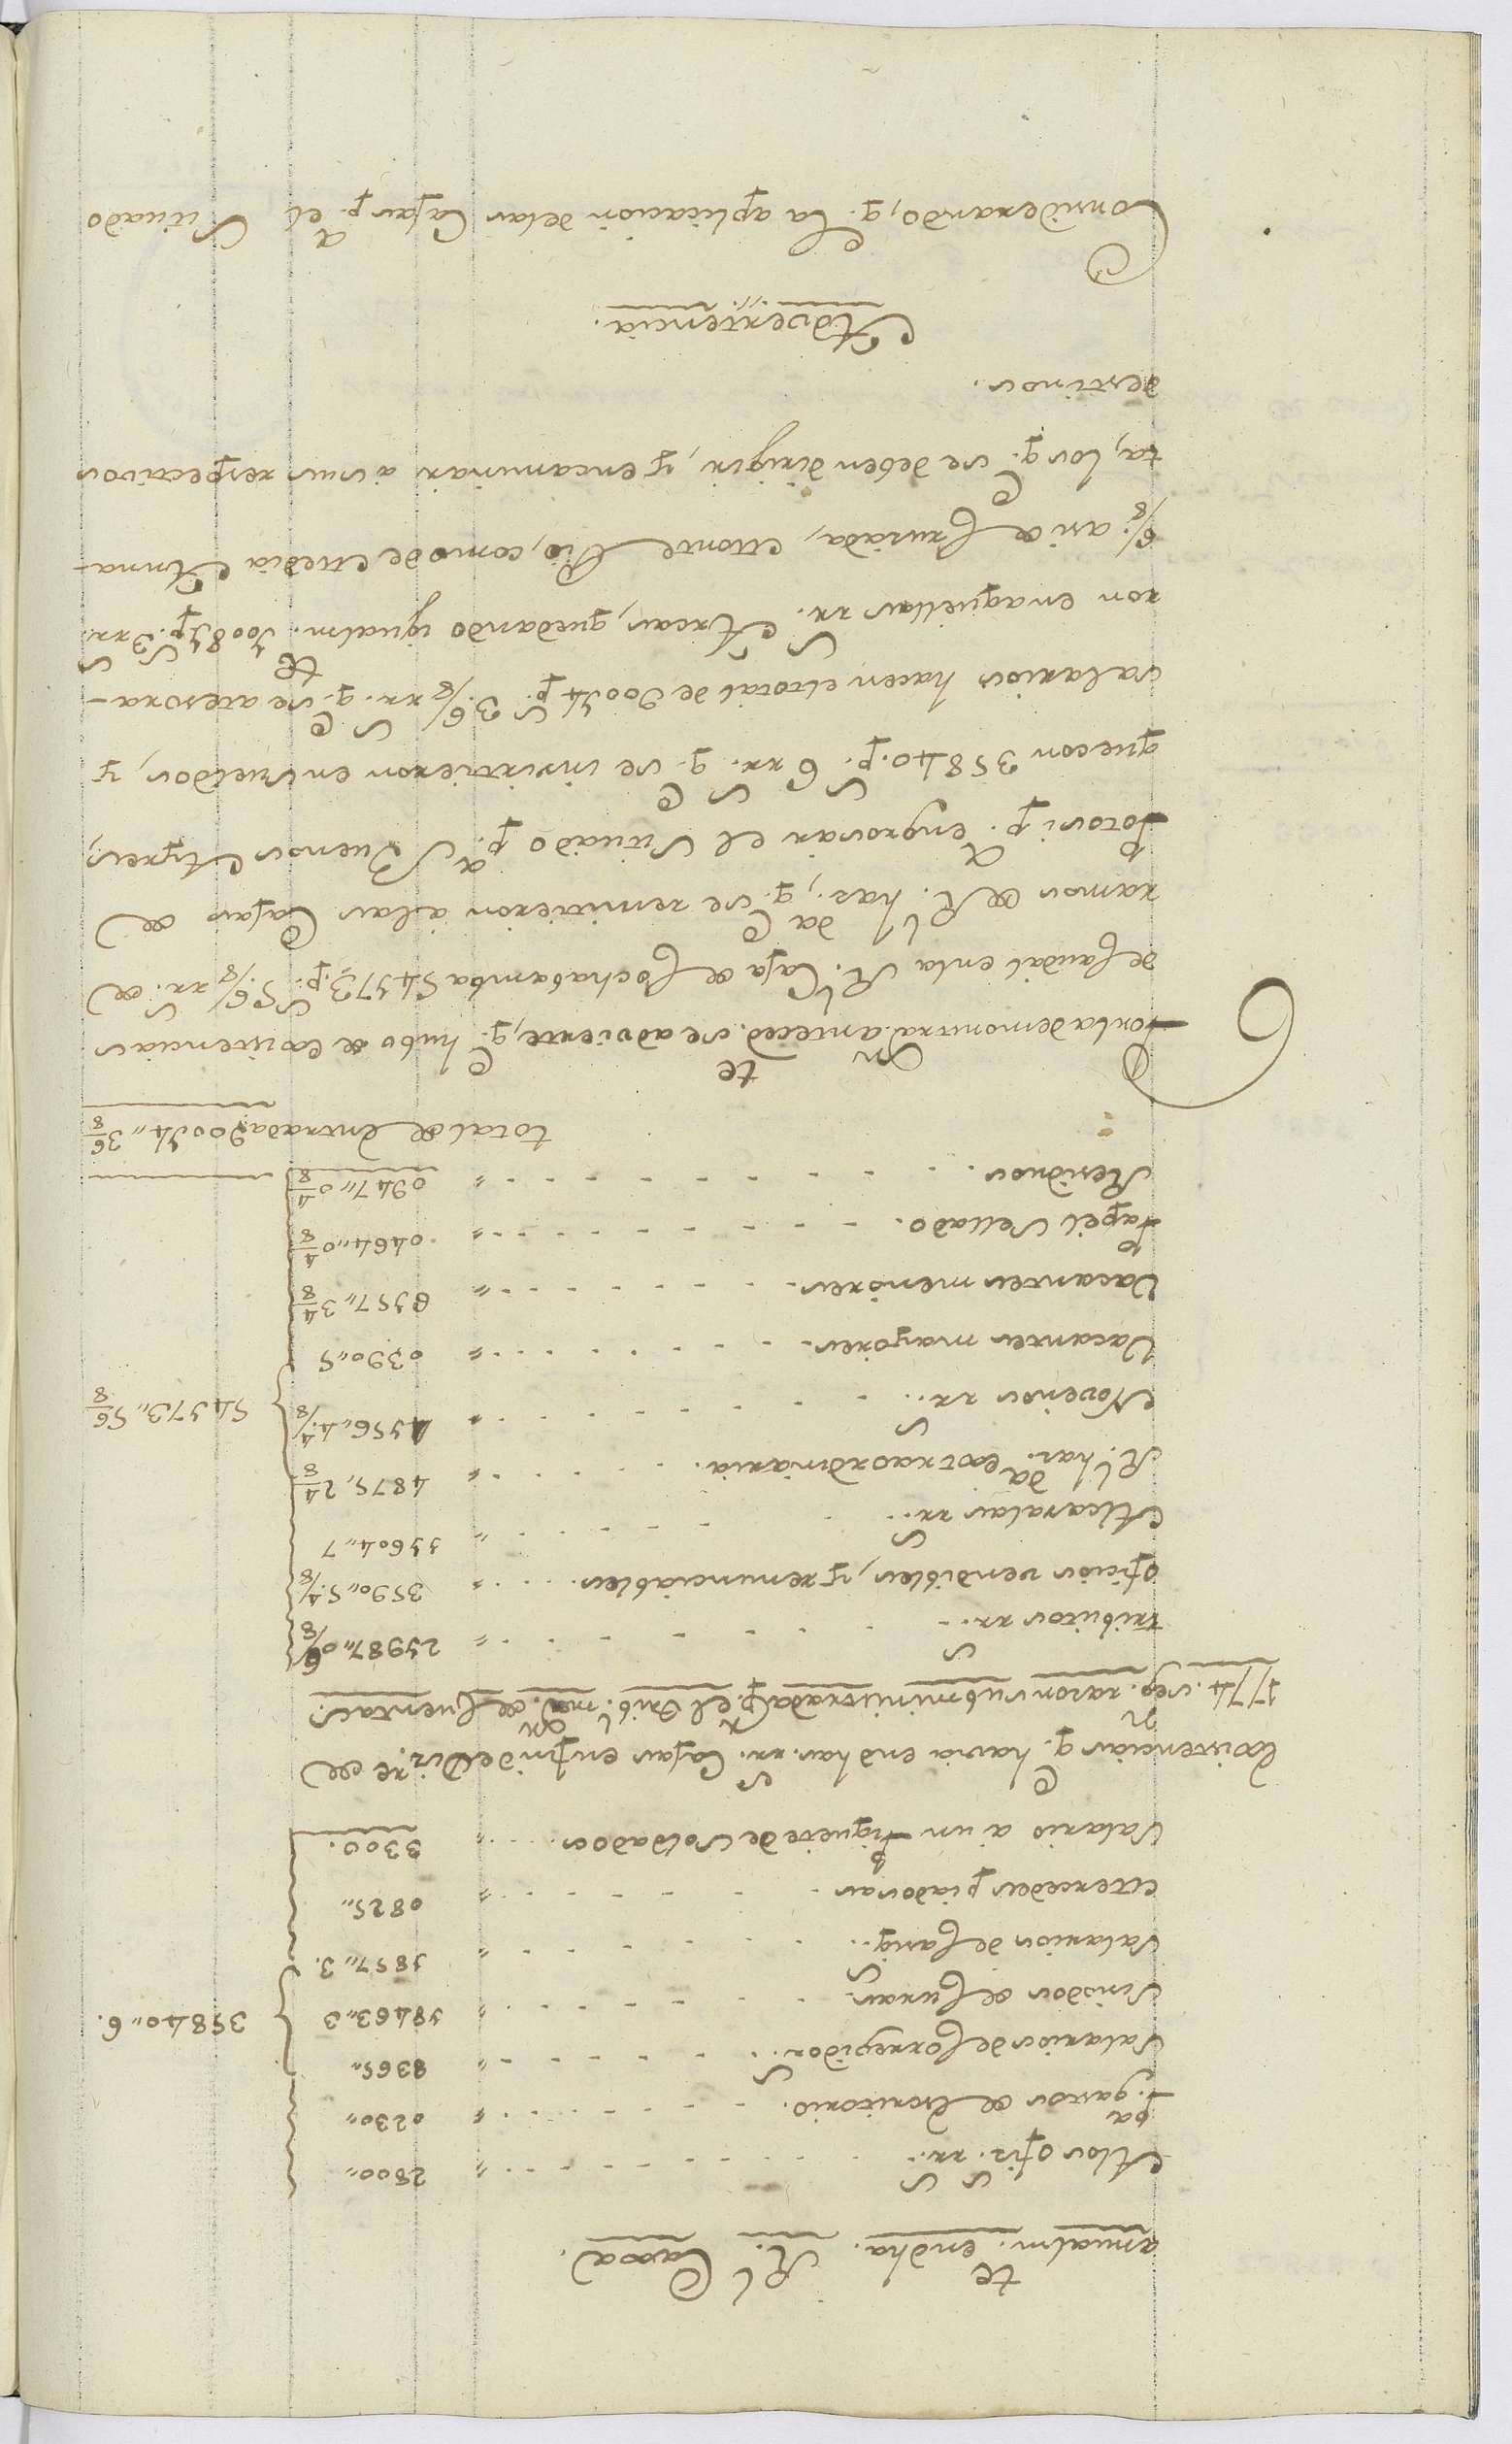 anualm.te endha. Rl. Caxa.
A los ofiz.s rr.s . . . . . . . . . " 2800"
P.a gastos de Escritorio. . . . . . . " 0230"
Salarios de Corregidor.s . . . . . . " 8365"
Sinodos de Curas. . . . . . . . . " 18463"3
Salarios de Caziq.s . . . . . . . " 1857"3. } 35840"6.
Mercedes piadosas . . . . . . . . " 0825"
Salario a un Piquete de Soldados . . . . " 3300.
Existencias q.e havia en dhas. rr.s Caxas en fin de Diz.re de
1774. seg.n razon subministrada p.r el Trib.l ma.or de Cuentas.
tributos rr.s . . . . . . . . . " 25987"0 6/8
oficios vendibles, y renunciables. . . . . " 3590"5 4/8
Alcavalas rr.s . . . . . . . " 11604"7
Rl. haz.da Extraordinaria. . . . . . " 4875"2 4/8
Novenos rr.s . . . . . . . . " 4156"4 4/8 } 54373"5 6/8
Vacantes mayòres. . . . . . . . . " 0390"5
Vacantes menòres. . . . . . . . . " 6357"3 4/8
Papel Sellado. . . . . . . . . " 0464"0 4/8
Residuos . . . . . . . . . . " 0947"0 4/8
total de Entrada 90014"3 6/8
Por la demonstra.on anteced.te se advierte, q.e hubo de Existencias
de Caudal en la Rl. Caxa de Cochabamba 54173.p.s 5 6/8 rr.s de
ramos de Rl. haz.da, q.e se remitieron à las Caxas de
Potosi p.a engrosar el Situado p.a Buenos Ayres,
que con 35840.p.s 6 rr.s q.e se invirtieron en sueldos, y
salarios hacen el total de 90014 p.s 3 6/8 rr.s q.e se atesora-
ron en aquellas rr.s Arcas, quedando igualm.te 10081 p.s 3 rr.s
6/8. asi de Cruzada, Monte Pio, como de Media Anna-
ta, los q.e se deben dirigir, y encaminar à sus respectivos
destinos.
Advertencia.
Considerando, q.e la aplicacion de las Caxas p.a el Situado